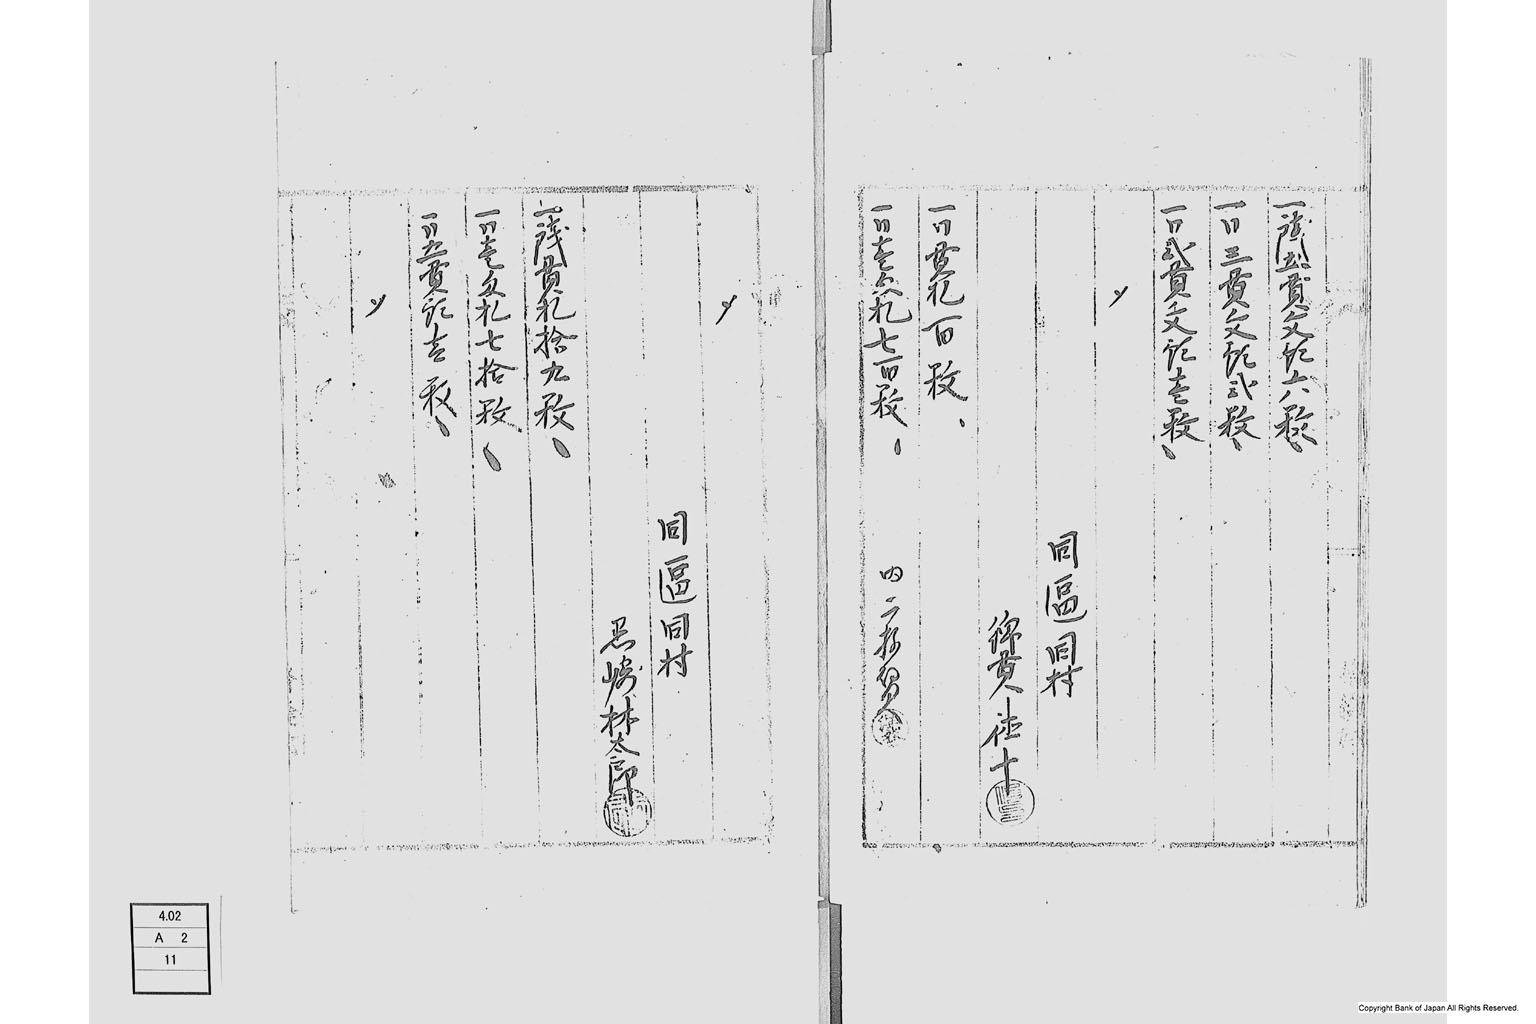 一銭五貫文札六枚
一同三貫文札弐枚
一同弐貫文札壱枚
〆
同區同村
徳十
一同貫札百枚
一同壱文札七百枚
内二枚
〆
同區同村
黒崎林太郎
一銭貫札拾九枚
一同壱文札七拾枚
一同五貫札壱枚
〆
4.02
A 2
11
Copyright Bank of Japan All Rights Reserved.